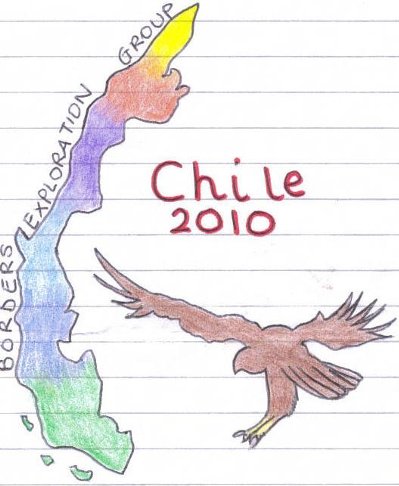 BORDERS EXPLORATION GROUP
Chile
2010